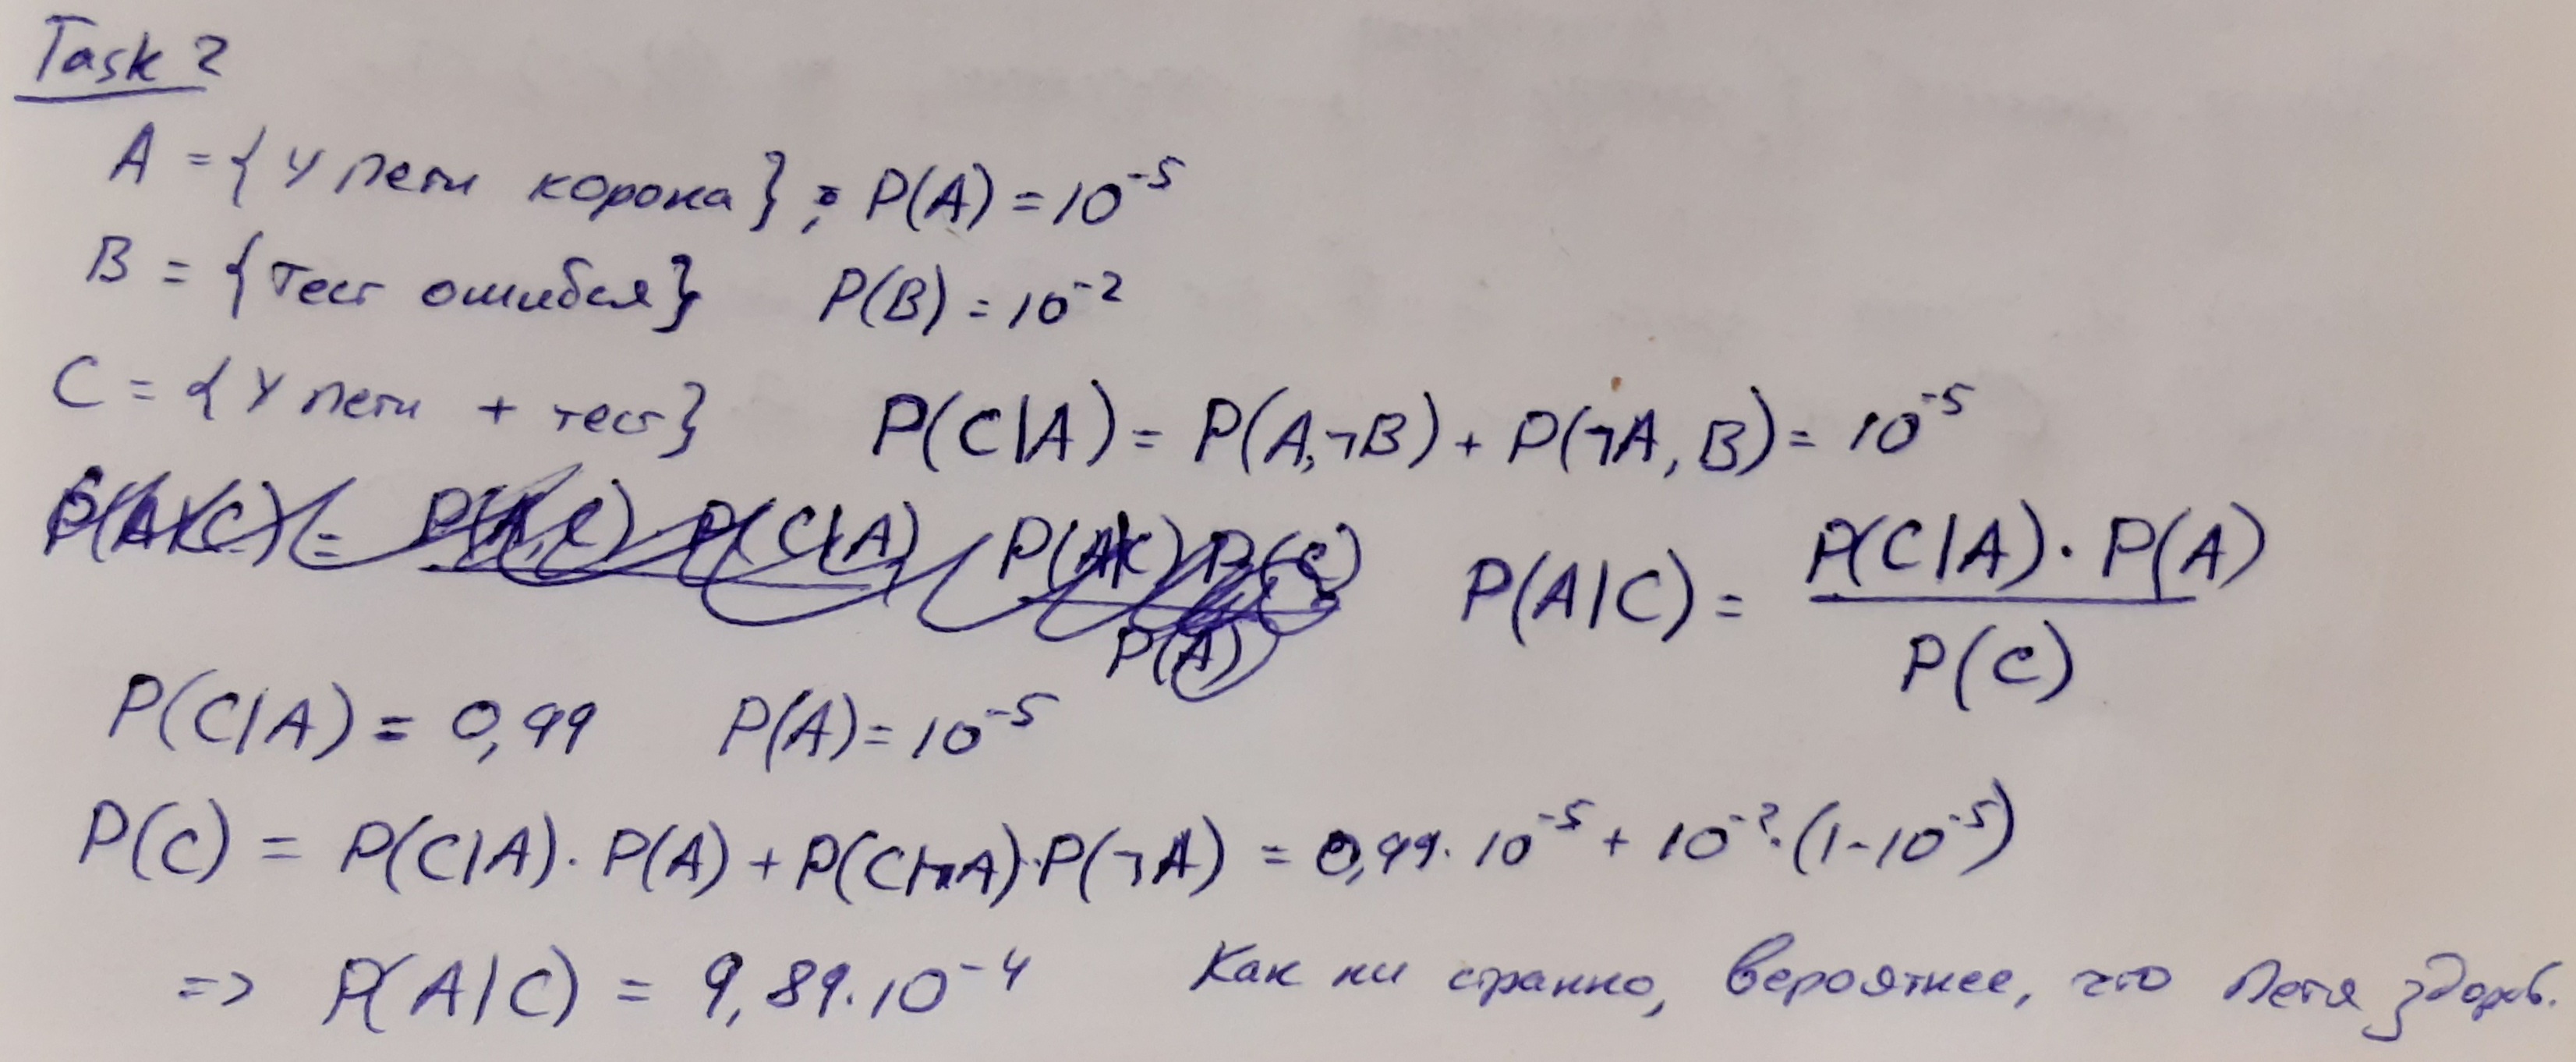 Task 2
A = {У Пети корона}; P(A) = 10^-5
B = {Тест ошибся} P(B) = 10^-2
C = {У Пети + тест} P(C|A) = P(A,¬B) + P(¬A, B) = 10^-5
P(A|C) = P(A,C) P(C|A) P(A|C) P(C) P(A) P(A|C) = P(C|A) · P(A) / P(C)
P(C|A) = 0,99 P(A) = 10^-5
P(C) = P(C|A) · P(A) + P(C|¬A) · P(¬A) = 0,99 · 10^-5 + 10^-2 · (1-10^-5)
=> P(A|C) = 9,89 · 10^-4 Как ни странно, вероятнее, что Петя здоров.